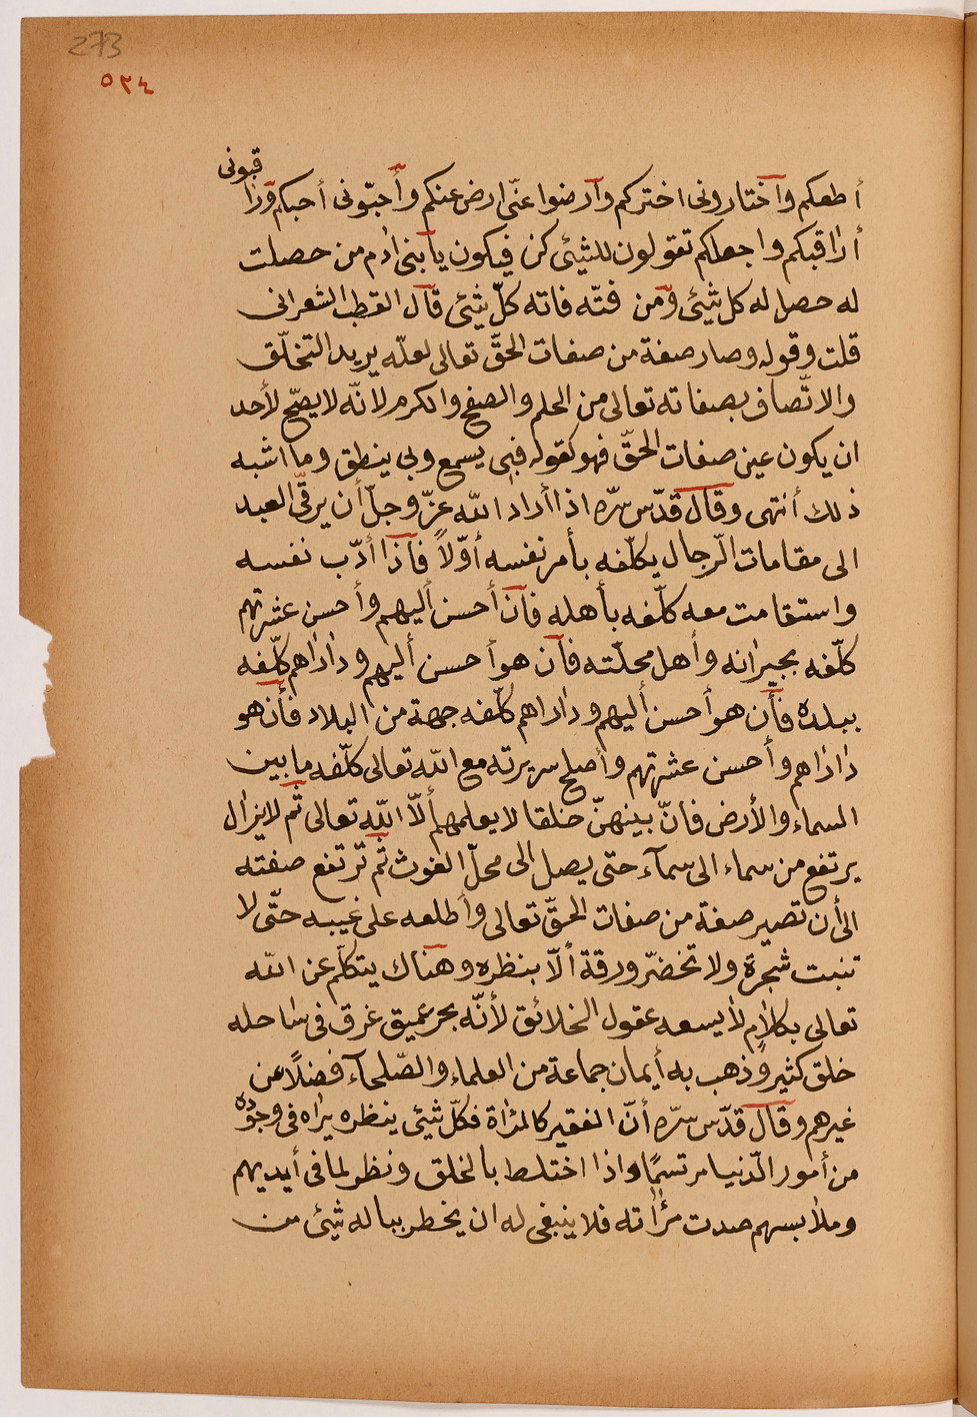 273
٥٢٤
أطعكم وآختارونى اختركم وآرضوا عنّى ارض عنكم وأحبّونى أحبكم وراقبونى
أراقبكم واجعلكم تقولون للشيئ كن فيكون يآبنى اٰدم من حصلت
له حصل له كل شيئ ومن فتّه فاته كلّ شيئ قآل القطب الشعرانى
قلت وقوله وصار صفة من صفات الحقّ تعالى لعلّه يريد التخلّق
والاتّصاف بصفاته تعالى من الحلم والصفح والكرم لانّه لا يصّح لأحد
ان يكون عين صفات الحقّ فهو كقوله فبى يسمع وبى ينطق وما اشبه
ذلك أنتهى وقال قدّس سرّه اذا أراد اللّه عزّ وجلّ أن يرقّى العبد
الى مقامات الّرجال يكلّفه بأمر نفسه أوّلاً فآذا أدّب نفسه
واستقامت معه كلّفه بأهله فآن أحسن أليهم وأحسن عشرتهم
كلّفه بجيرانه وأهل محلّته فآن هو أحسن أليهم وداراهم كلّفه
ببلده فأن هو أحسن أليهم وداراهم كلّفه جهة من البلاد فأن هو
داراهم وأحسن عشرتهم وأصلح سريرته مع اللّه تعالى كلّفه ما بين
السماء والأرض فانّ بينهنّ خلقا لا يعلمهم ألّا اللّه تعالى ثم لا يزال
يرتفع من سماء الى سمآء حتى يصل الى محلّ الغوث ثم ترتفع صفته
الى أن تصير صفة من صفات الحقّ تعالى وأطلعه على غيبه حتّى لا
تنبت شجرة ولا تخضرّ ورقة ألّا بنظره وهنآك يتكلّم عن اللّه
تعالى بكلامٍ لا يسعه عقول الخلائق لأنّه بحر عميق غرق فى ساحله
خلق كثير وذهب به أيمان جماعة من العلماء والصّلحآء فضلاً عن
غيرهم وقال قدّس سرّه أنّ الفقير كالمرٰاة فكلّ شيئ ينظره يراه فى وجوده
من أمور الّدنيا مرتسمًا واذا اختلط بالخلق ونظر لما فى أيديهم
وملابسهم صدت مرٰاته فلا ينبغى له ان يخطر بباله شيئ من